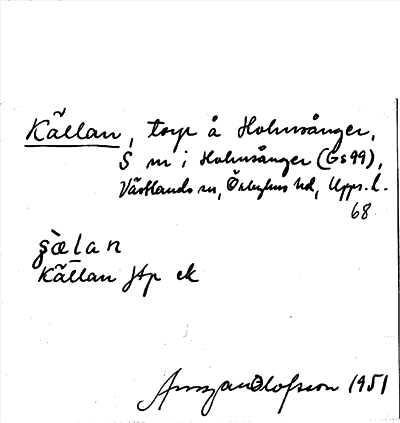 Källan, torp å Holmsånger,
S m i Holmsånger (Gs 99),
Västlands sn, Örbyhus hd, Upps. l.
68
s̀æl̲an
Källan jtp ek
Olofsson 1951